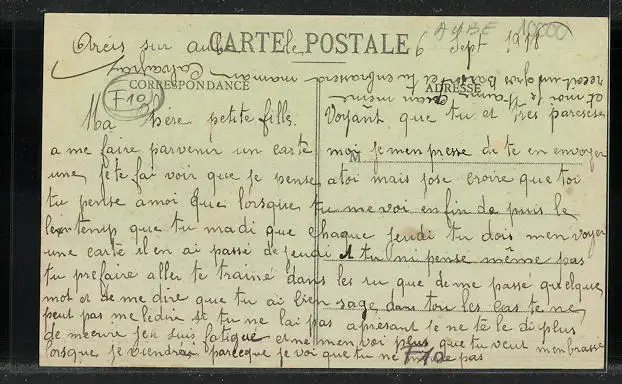 Arcis sur aube le 6 Sept 1918
CARTE POSTALE
AUBE 10000
CORRESPONDANCE
ADRESSE
F10
M
Ma Chère petite fille. Voyant que tu et très paresese
a me faire parvenir un carte moi je men presse de te en envoyer
une je te fai voir que je pense a toi mais jose croire que toi
tu pense a moi que lorsque tu me voi enfin de puis le
lontemp que tu madi que chaque jeudi tu dois men voyer
une carte il en ai passé de jeudi et tu ni pense même pas
tu prefaire aller te trainé dans les ru que de me passé quelque
mot et de me dire que tu ai bien sage dans tou les cas te ne
peut pas me ledire si tu ne lai pas apresant je ne te le di plus
de mecrire jen suis fatigué et ne men voi plus que tu veut menbrassé
lorsque je viendrai parceque je voi que tu ne me pas
F10
et moi je taime quan meme
recoit un gros Baiser et tu enbrassera maman